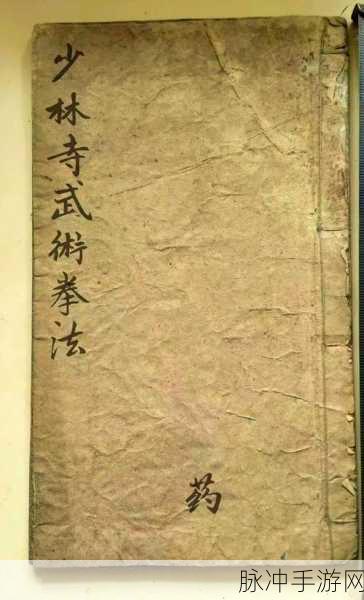 少林寺武術拳法
药
脉冲手游网